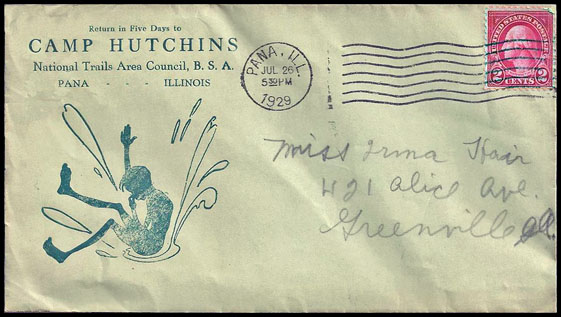 Return in Five Days to
CAMP HUTCHINS
National Trails Area Council, B. S. A.
PANA - - ILLINOIS
PANA, ILL.
JUL 26
5 30 PM
1929
UNITED STATES POSTAGE
2 CENTS 2
Miss Irma Hair
421 Alice Ave.
Greenville
Ill.